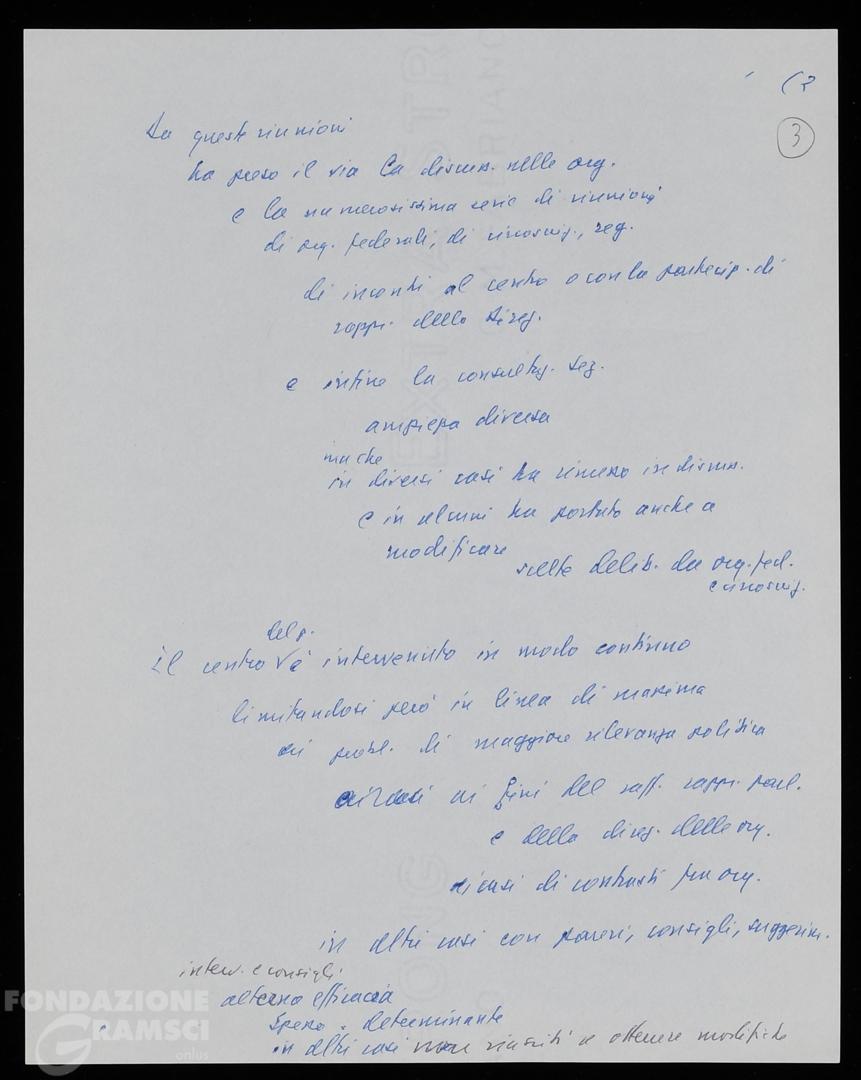 (3
3
Da queste riunioni
ha preso il via la discuss. nelle org.
e la numerosissima serie di riunioni
di org. federali, di circoscriz., reg.
di incontri al centro o con la partecip. di
rappr. della Direz.
e infine la consultaz. sez.
ampiezza diversa
ma che
in diversi casi ha rimesso in discuss.
e in alcuni ha portato anche a
modificare
scelte delib. da org. fed.
e circoscriz.
del p.
Il centro è intervenuto in modo continuo
limitandosi però in linea di massima
ai probl. di maggiore rilevanza politica
ai fini del raff. rappr. parl.
e della direz. delle org.
ai casi di contrasti fra org.
in altri casi con pareri, consigli, suggerim.
interv. e consigli
alterna efficacia
spesso determinante
in altri casi non riusciti a ottenere modifiche
FONDAZIONE
GRAMSCI
onlus